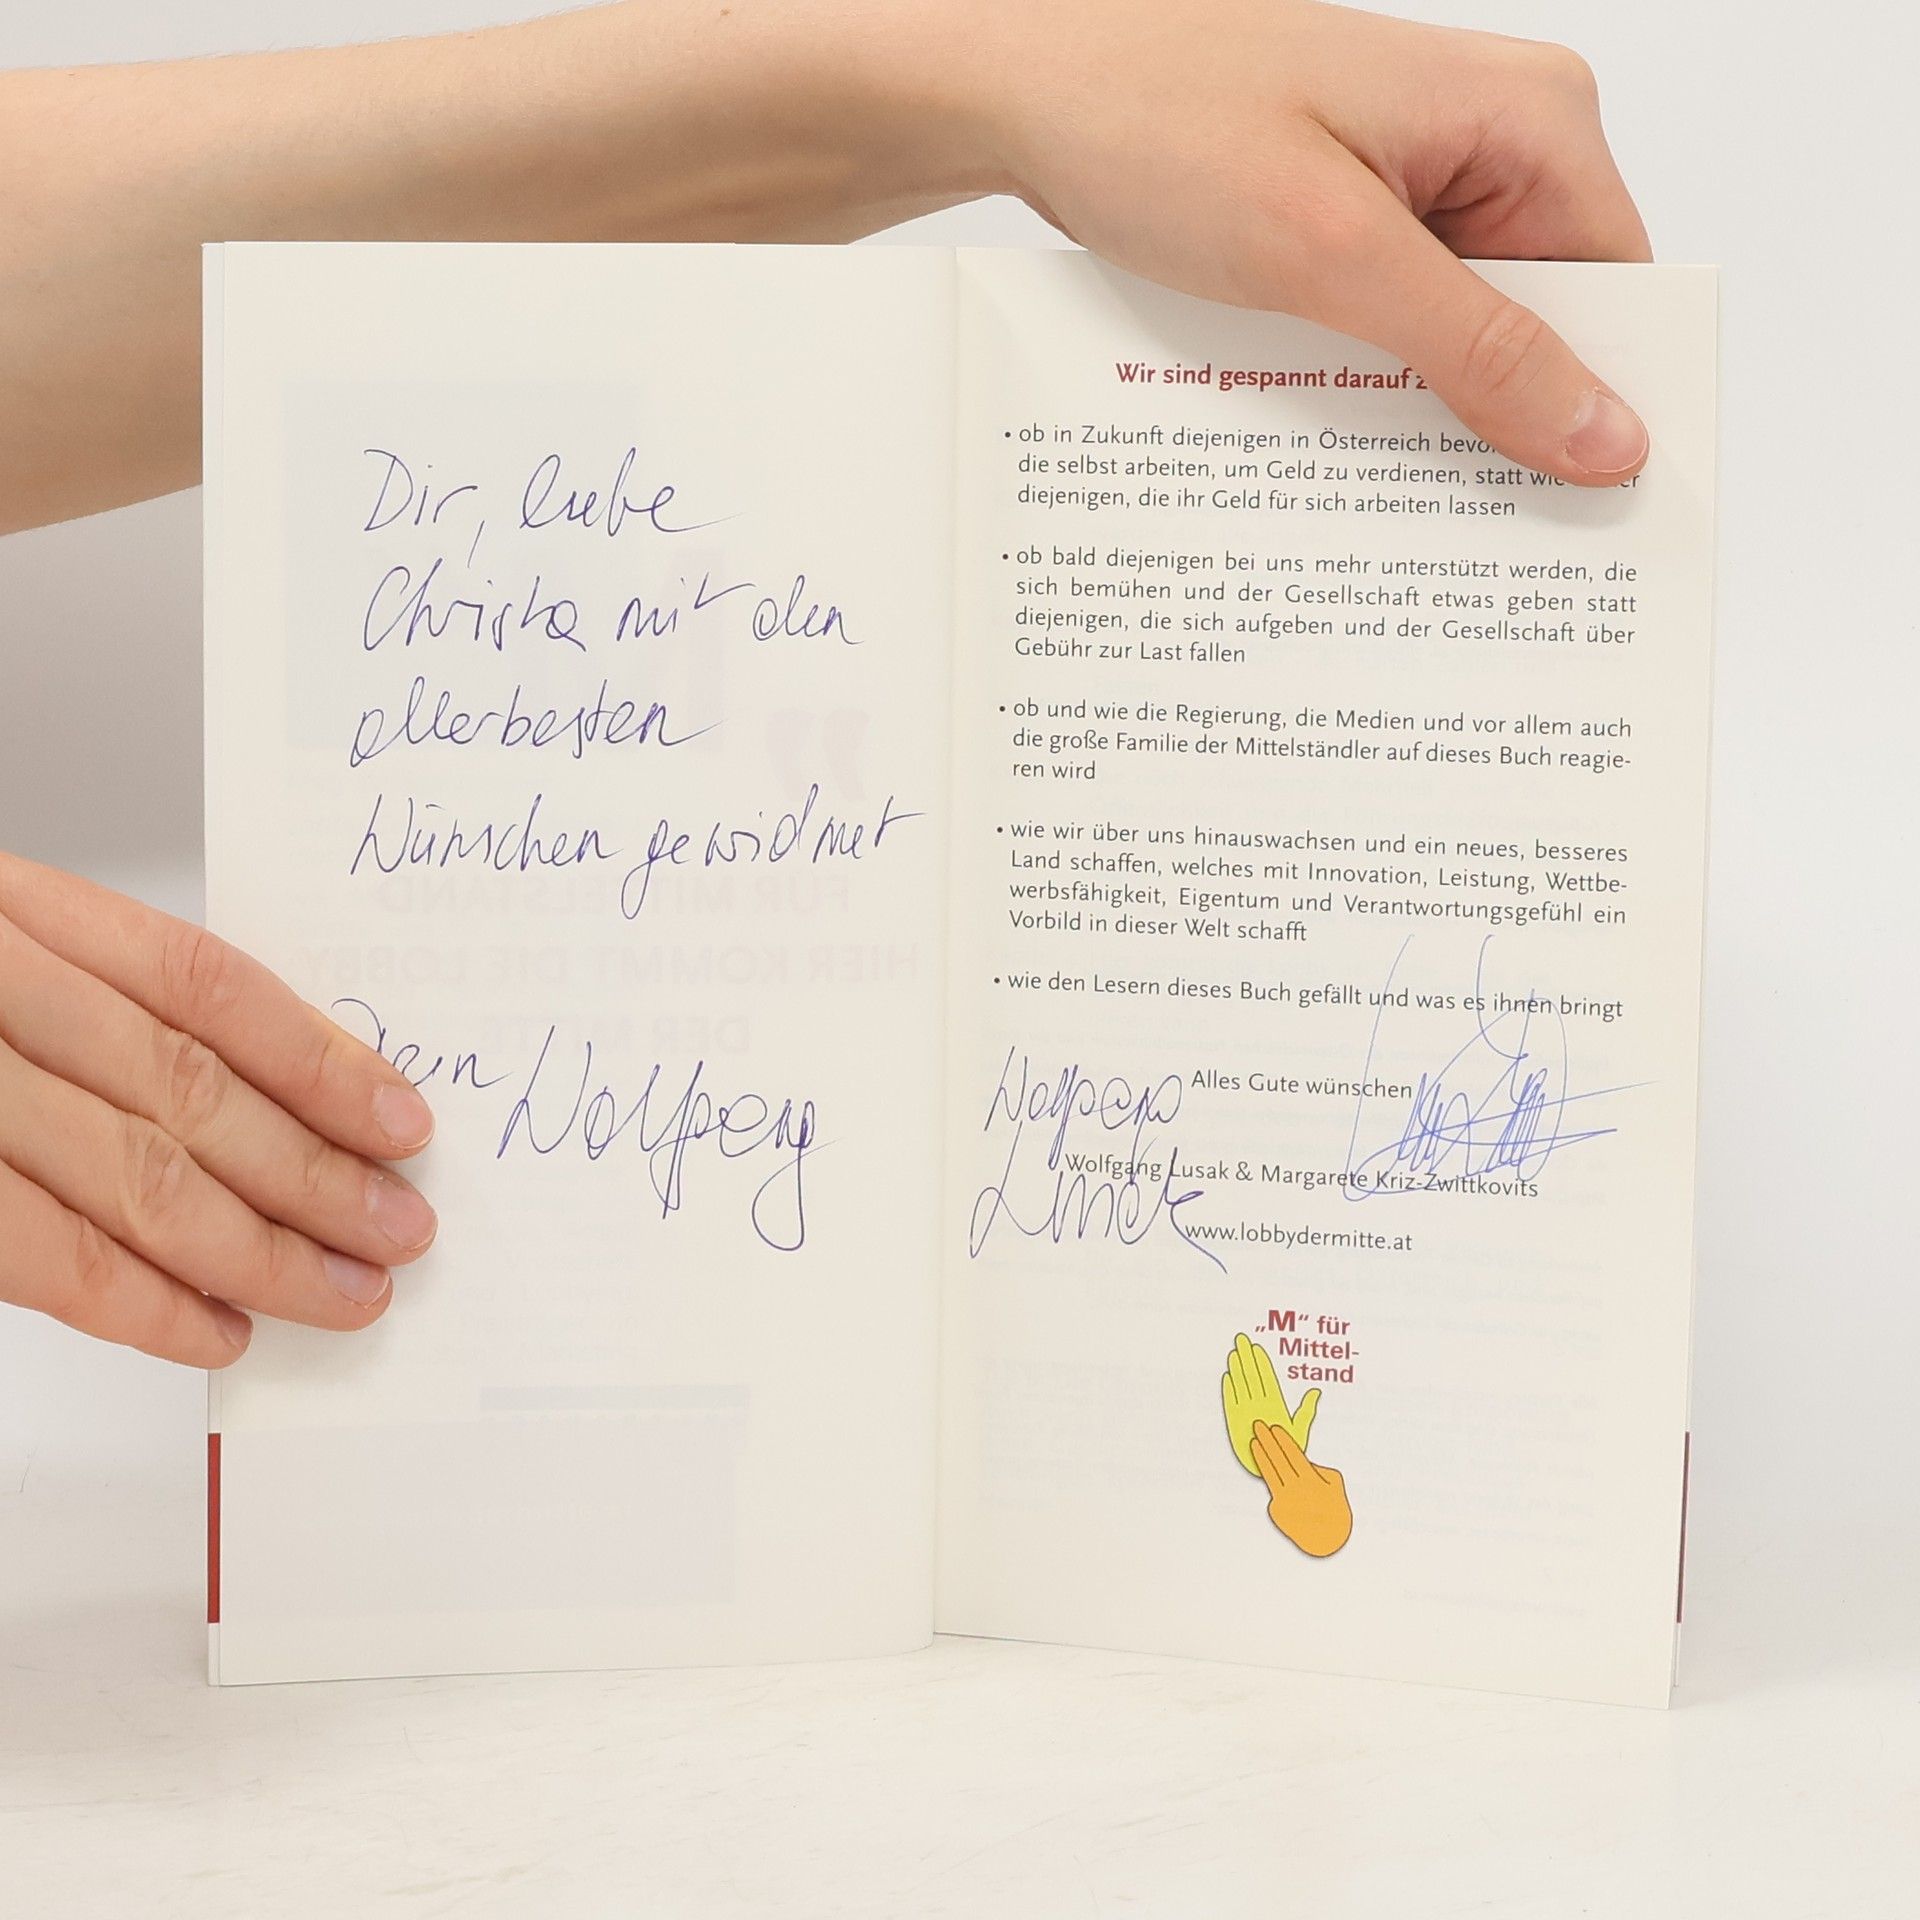 Dir, liebe
Christa mit den
allerbesten
Wünschen gewidmet
Dein Wolfgang
Wir sind gespannt darauf
• ob in Zukunft diejenigen in Österreich
die selbst arbeiten, um Geld zu verdienen, statt
diejenigen, die ihr Geld für sich arbeiten lassen
• ob bald diejenigen bei uns mehr unterstützt werden, die
sich bemühen und der Gesellschaft etwas geben statt
diejenigen, die sich aufgeben und der Gesellschaft über
Gebühr zur Last fallen
• ob und wie die Regierung, die Medien und vor allem auch
die große Familie der Mittelständler auf dieses Buch reagie-
ren wird
• wie wir über uns hinauswachsen und ein neues, besseres
Land schaffen, welches mit Innovation, Leistung, Wettbe-
werbsfähigkeit, Eigentum und Verantwortungsgefühl ein
Vorbild in dieser Welt schafft
• wie den Lesern dieses Buch gefällt und was es ihnen bringt
Wolfgang
Alles Gute wünschen
Wolfgang Lusak & Margarete Kriz-Zwittkovits
Lusak
www.lobbydermitte.at
„M“ für
Mittel-
stand